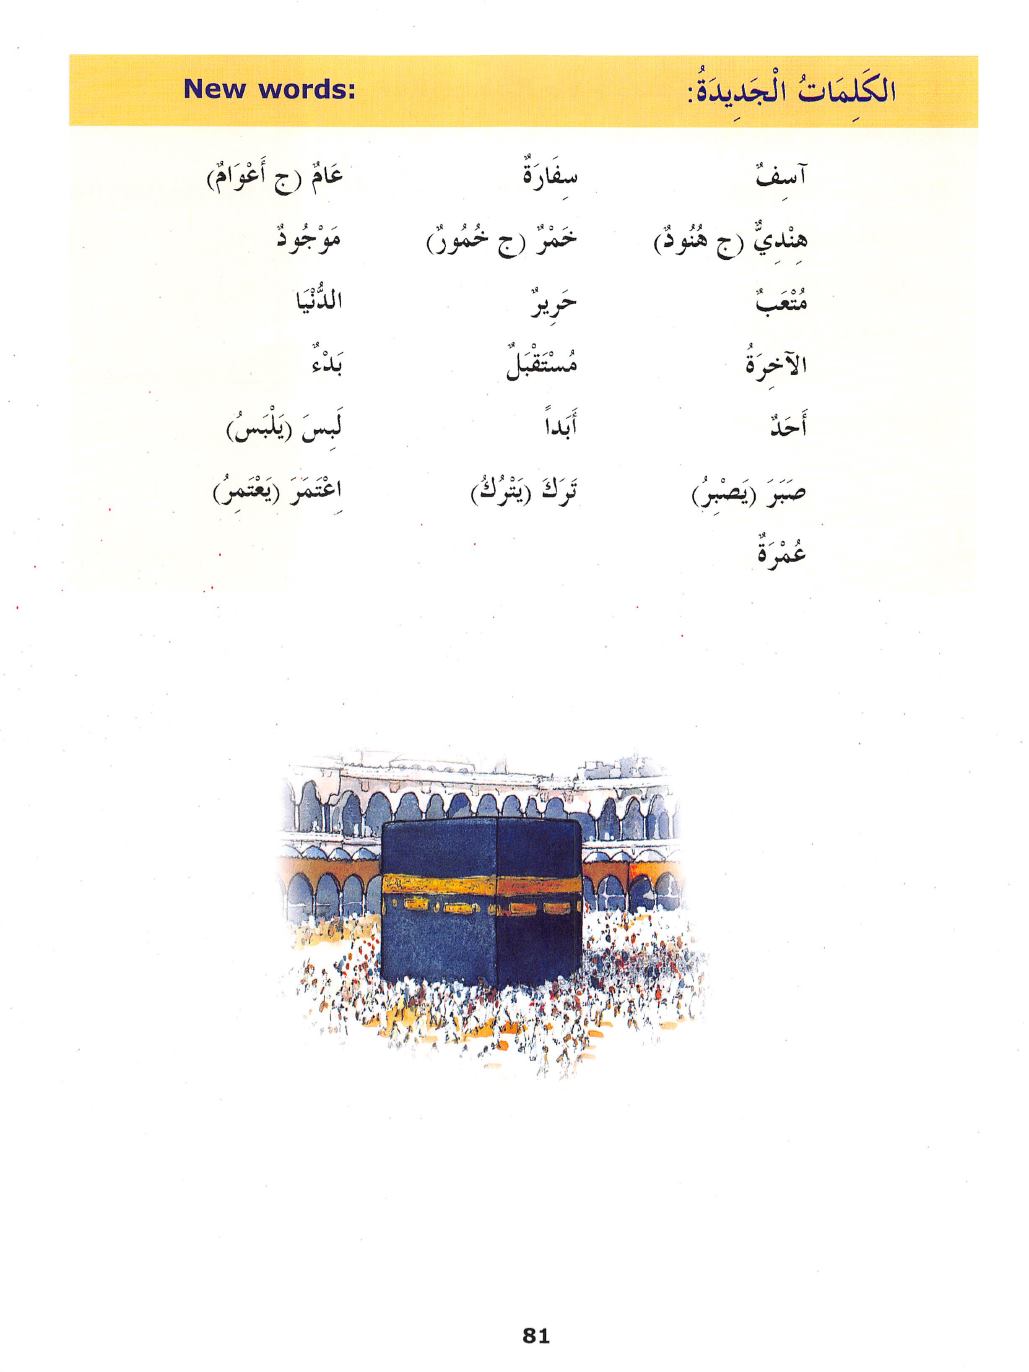 الكَلِمَاتُ الْجَدِيدَةُ: New words:
آسِفٌ سِفَارَةٌ عَامٌ (ج أَعْوَامٌ)
هِنْدِيٌّ (ج هُنُودٌ) خَمْرٌ (ج خُمُورٌ) مَوْجُودٌ
مُتْعَبٌ حَرِيرٌ الدُّنْيَا
الآخِرَةُ مُسْتَقْبَلٌ بَدْءٌ
أَحَدٌ أَبَداً لَبِسَ (يَلْبَسُ)
صَبَرَ (يَصْبِرُ) تَرَكَ (يَتْرُكُ) اِعْتَمَرَ (يَعْتَمِرُ)
عُمْرَةٌ
81